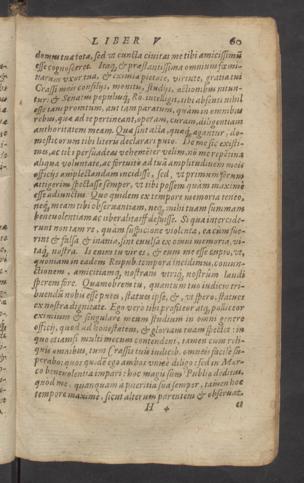 LIBER V 60
domui tua tota, sed ut cuncta civitas me tibi amicissimũ
esse cognosceret. Itaq; & præstantissima omnium fœmi
narum uxor tua, & eximia pietate, virtute, gratia tui
Crassi meis consiliis, monitis, studijs, actionibus nitun
tur: & Senatus populusq; Ro. intelligit, tibi absenti nihil
esse tam promtum, aut tam paratum, quàm in omnibus
rebus, quæ ad te pertineant, operam, curam, diligentiam
authoritatem meam. Quæ sint acta, quæq; agantur, do-
mesticorum tibi literis declarari puto. De me sic existi-
mes, ac tibi persuadeas vehementer velim, nõ me repẽtina
aliqua voluntate, ac fortuito ad tuã amplitudinem meis
officijs amplectandam incidisse, sed, ut primum forum
attigerim spectasse semper, ut tibi possem quàm maximè
esse adiunctus. Quo quidem ex tempore memoria teneo,
neq; meam tibi observantiam, neq; mihi tuam summam
benevolentiam ac liberalitatẽ defuisse. Si qua intercide-
runt non tam re, quàm suspicione violenta, ea cum fue-
rint & falsa & inania, sint euulsa ex omni memoria, vi-
taq; nostra. Is enim tu vir es, & eum me esse cupio, ut,
quoniam in eadem Reipub. tempora incidimus, coniun-
ctionem, amicitiamq; nostram utriq; nostrũm laudi
sperem fore. Quamobrem tu, quantum tuo iudicio tri-
buendũ nobis esse putes, statues ipse, &, ut spero, statues
ex nostra dignitate. Ego vero tibi profiteor atq; polliceor
eximium & singulare meum studium in omni genere
officij, quod ad honestatem, & gloriam tuam spectet: in
quo etiamsi multi mecum contendent, tamen cum reli-
quis omnibus, tum Crassis tuis iudicib. omneis facilè su-
perabo: quos quidẽ ego ambos unicè diligo: sed in Mar-
co benevolentia impari: hoc magis sum Publio deditus,
quod me, quanquam à pueritia sua semper, tamen hoc
tempore maximè, sicut alterum parentem & observat,
H ei